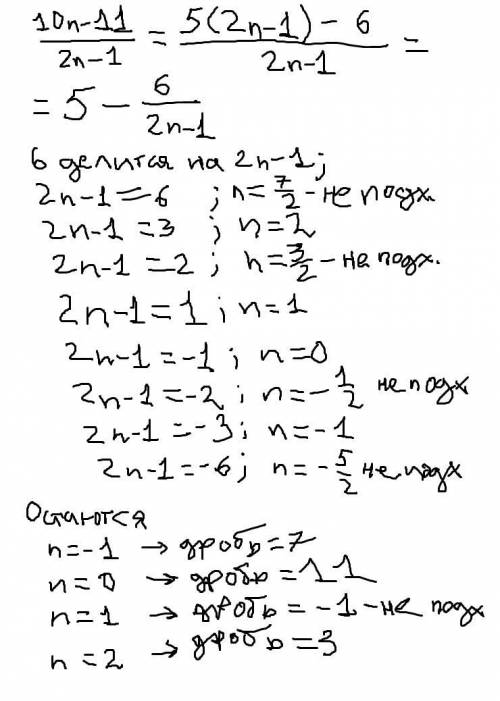 (10n-11)/(2n-1) = (5(2n-1) - 6)/(2n-1) =
= 5 - 6/(2n-1)
6 делится на 2n-1;
2n-1=6 ; n=7/2 - не подх.
2n-1=3 ; n=2
2n-1=2 ; n=3/2 - не подх.
2n-1=1 ; n=1
2n-1=-1 ; n=0
2n-1=-2 ; n=-1/2 не подх
2n-1=-3 ; n=-1
2n-1=-6 ; n=-5/2 не подх
Остаются
n=-1 → дробь=7
n=0 → дробь=11
n=1 → дробь=-1-не подх
n=2 → дробь=3